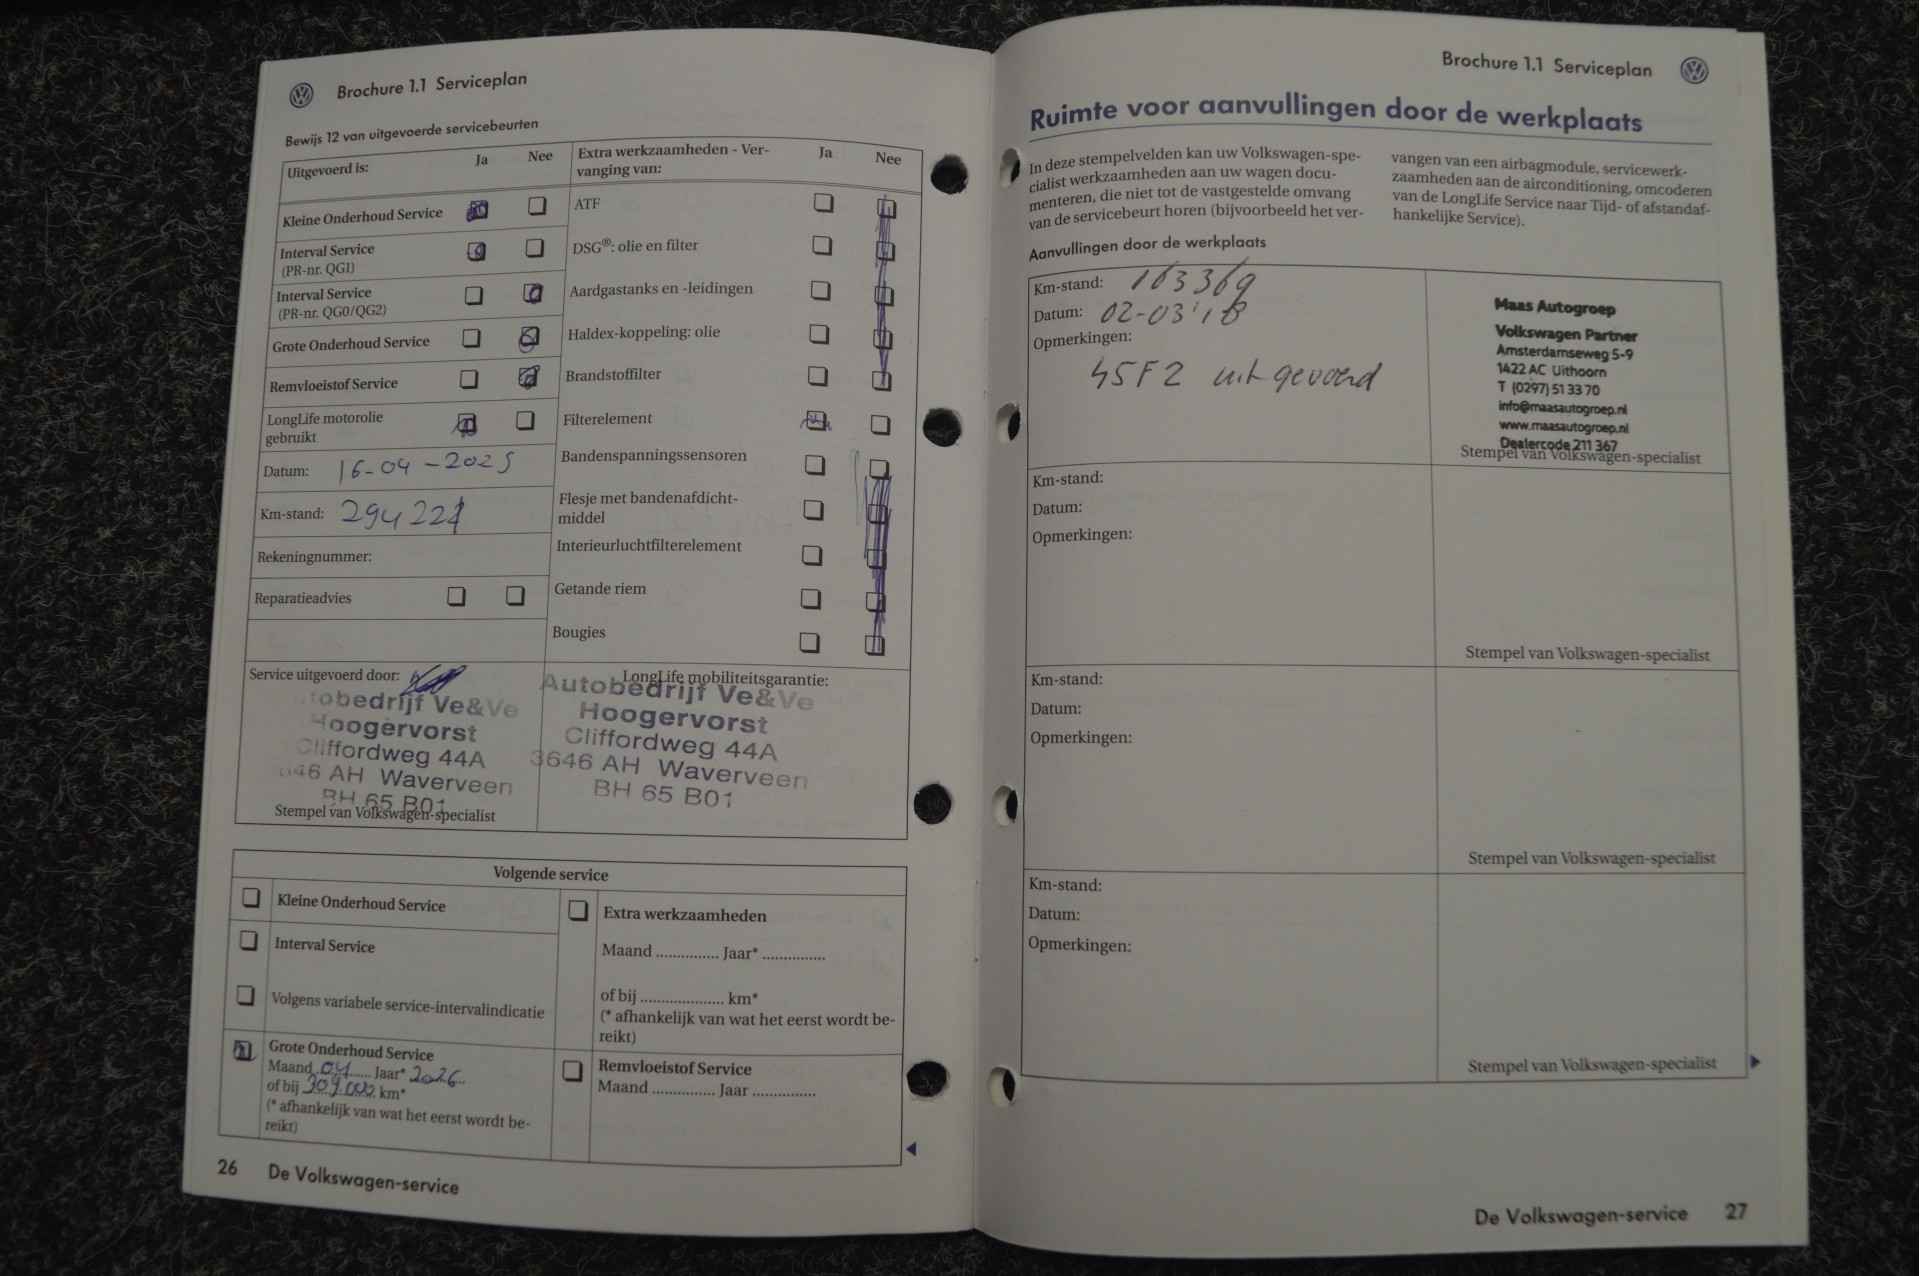 Brochure 1.1 Serviceplan
Bewijs 12 van uitgevoerde servicebeurten
Uitgevoerd is: Ja Nee
Kleine Onderhoud Service
Interval Service
(PR-nr. QG1)
Interval Service
(PR-nr. QG0/QG2)
Grote Onderhoud Service
Remvloeistof Service
LongLife motorolie
gebruikt
Datum: 16-04-2025
Km-stand: 294221
Rekeningnummer:
Reparatieadvies
Extra werkzaamheden - Ver-
vanging van: Ja Nee
ATF
DSG®: olie en filter
Aardgastanks en -leidingen
Haldex-koppeling: olie
Brandstoffilter
Filterelement
Bandenspanningssensoren
Flesje met bandenafdicht-
middel
Interieurluchtfilterelement
Getande riem
Bougies
Service uitgevoerd door:
tobedrijf Ve&Ve
Hoogervorst
Cliffordweg 44A
646 AH Waverveen
BH 65 B01
Stempel van Volkswagen-specialist
LongLife mobiliteitsgarantie:
Autobedrijf Ve&Ve
Hoogervorst
Cliffordweg 44A
3646 AH Waverveen
BH 65 B01
Volgende service
Kleine Onderhoud Service
Interval Service
Volgens variabele service-intervalindicatie
Grote Onderhoud Service
Maand 04 Jaar* 2026
of bij 309.000 km*
(* afhankelijk van wat het eerst wordt be-
reikt)
Extra werkzaamheden
Maand ............... Jaar* ...............
of bij .................... km*
(* afhankelijk van wat het eerst wordt be-
reikt)
Remvloeistof Service
Maand ............... Jaar ...............
26 De Volkswagen-service
Brochure 1.1 Serviceplan
Ruimte voor aanvullingen door de werkplaats
In deze stempelvelden kan uw Volkswagen-spe-
cialist werkzaamheden aan uw wagen docu-
menteren, die niet tot de vastgestelde omvang
van de servicebeurt horen (bijvoorbeeld het ver-
vangen van een airbagmodule, servicewerk-
zaamheden aan de airconditioning, omcoderen
van de LongLife Service naar Tijd- of afstandaf-
hankelijke Service).
Aanvullingen door de werkplaats
Km-stand: 163369
Datum: 02-03'18
Opmerkingen:
45F2 uitgevoerd
Maas Autogroep
Volkswagen Partner
Amsterdamseweg 5-9
1422 AC Uithoorn
T (0297) 51 33 70
info@maasautogroep.nl
www.maasautogroep.nl
Dealercode 211 367
Stempel van Volkswagen-specialist
Km-stand:
Datum:
Opmerkingen:
Stempel van Volkswagen-specialist
Km-stand:
Datum:
Opmerkingen:
Stempel van Volkswagen-specialist
Km-stand:
Datum:
Opmerkingen:
Stempel van Volkswagen-specialist
De Volkswagen-service 27